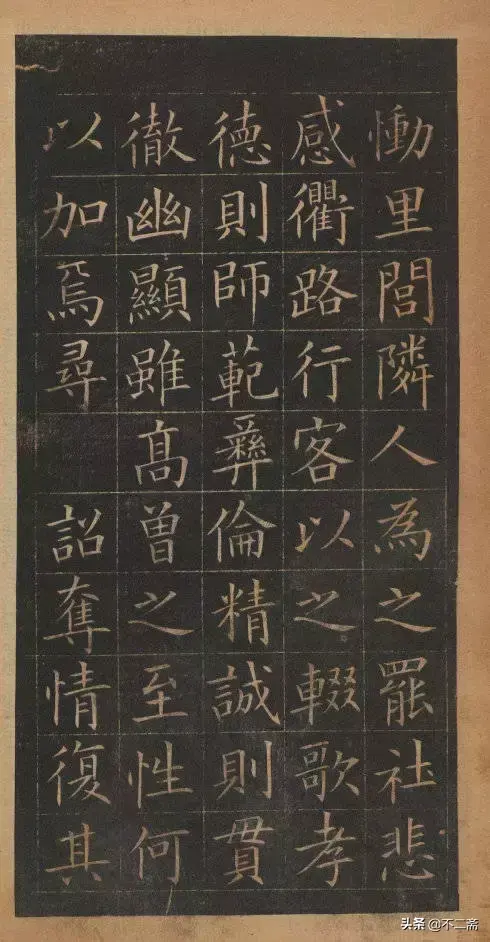 慟里閭隣人為之罷社悲
感衢路行客以之輟歌孝
德則師範彝倫精誠則貫
徹幽顯雖高曾之至性何
以加焉尋詔奪情復其
头条@不二斋